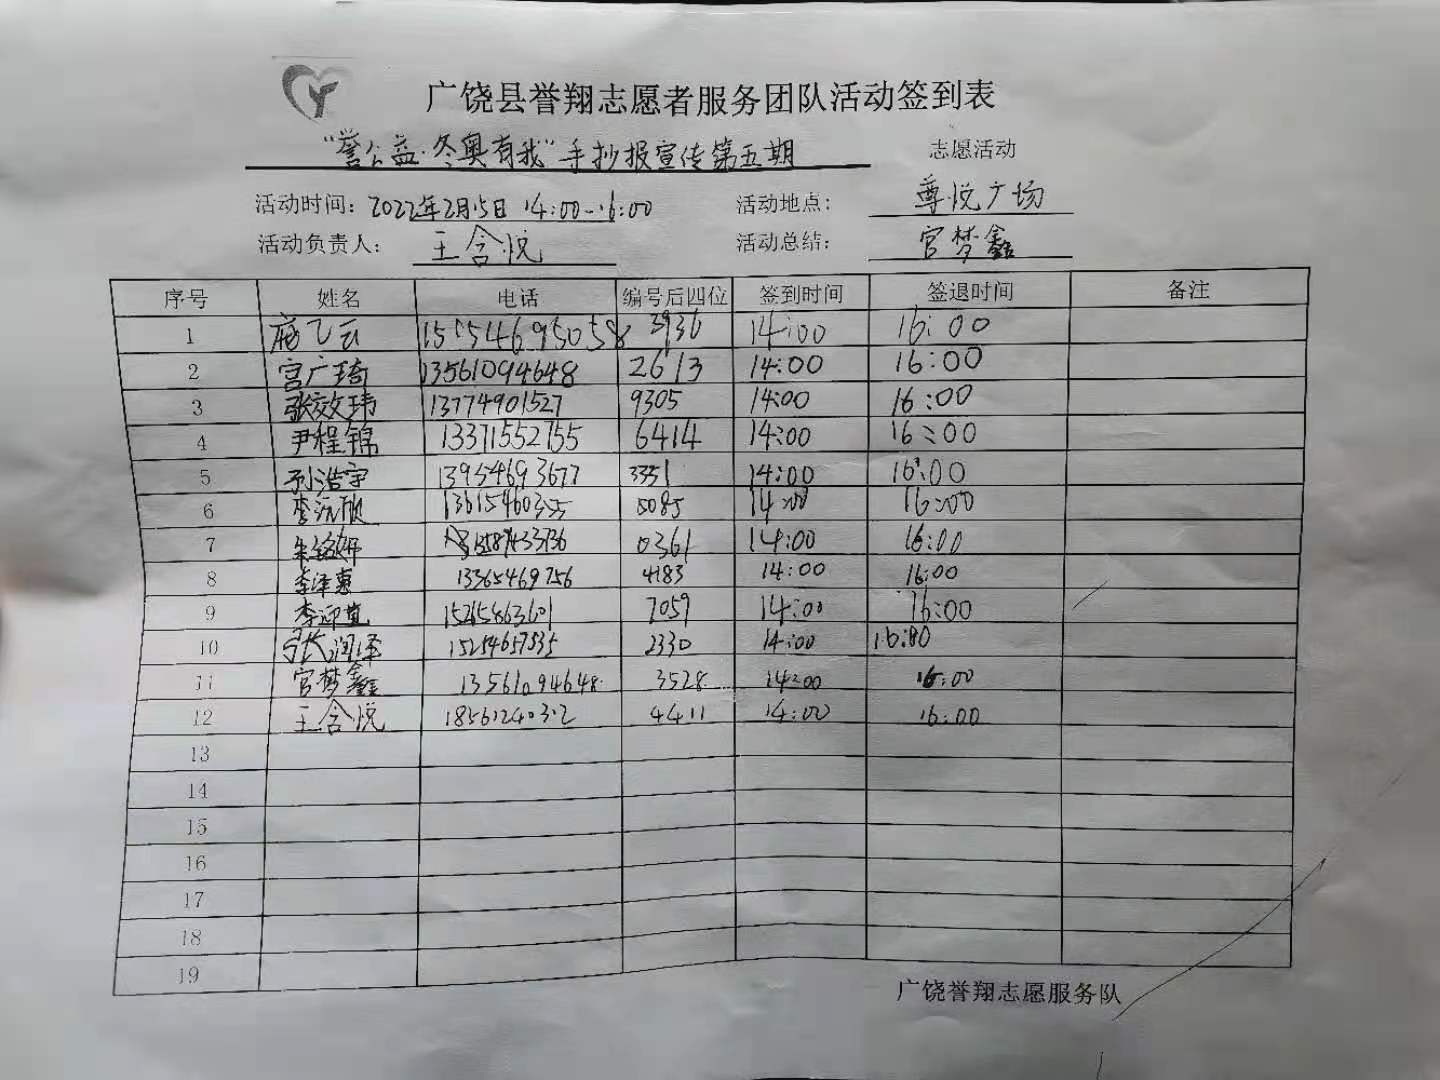 广饶县誉翔志愿者服务团队活动签到表
“誉公益·冬奥有我”手抄报宣传第五期 志愿活动
活动时间：2022年2月15日 14:00-16:00 活动地点： 尊悦广场
活动负责人： 王含悦 活动总结： 宫梦鑫
序号 姓名 电话 编号后四位 签到时间 签退时间 备注
1 飞云 15554695058 3936 14:00 16:00
2 宫广琦 13561094648 2613 14:00 16:00
3 张效玮 13774901527 9305 14:00 16:00
4 尹程锦 13371552755 6414 14:00 16:00
5 孙浩宇 13954693677 3351 14:00 16:00
6 李沅欣 13615460355 5085 14:00 16:00
7 朱铭妍 0361 14:00 16:00
8 李泽惠 13365469756 4183 14:00 16:00
9 李迎 15265863601 7059 14:00 16:00
10 张润泽 15254657535 2330 14:00 16:00
11 宫梦鑫 13561094648 3528 14:00 16:00
12 王含悦 18561240312 4411 14:00 16:00
13
14
15
16
17
18
19
广饶誉翔志愿服务队